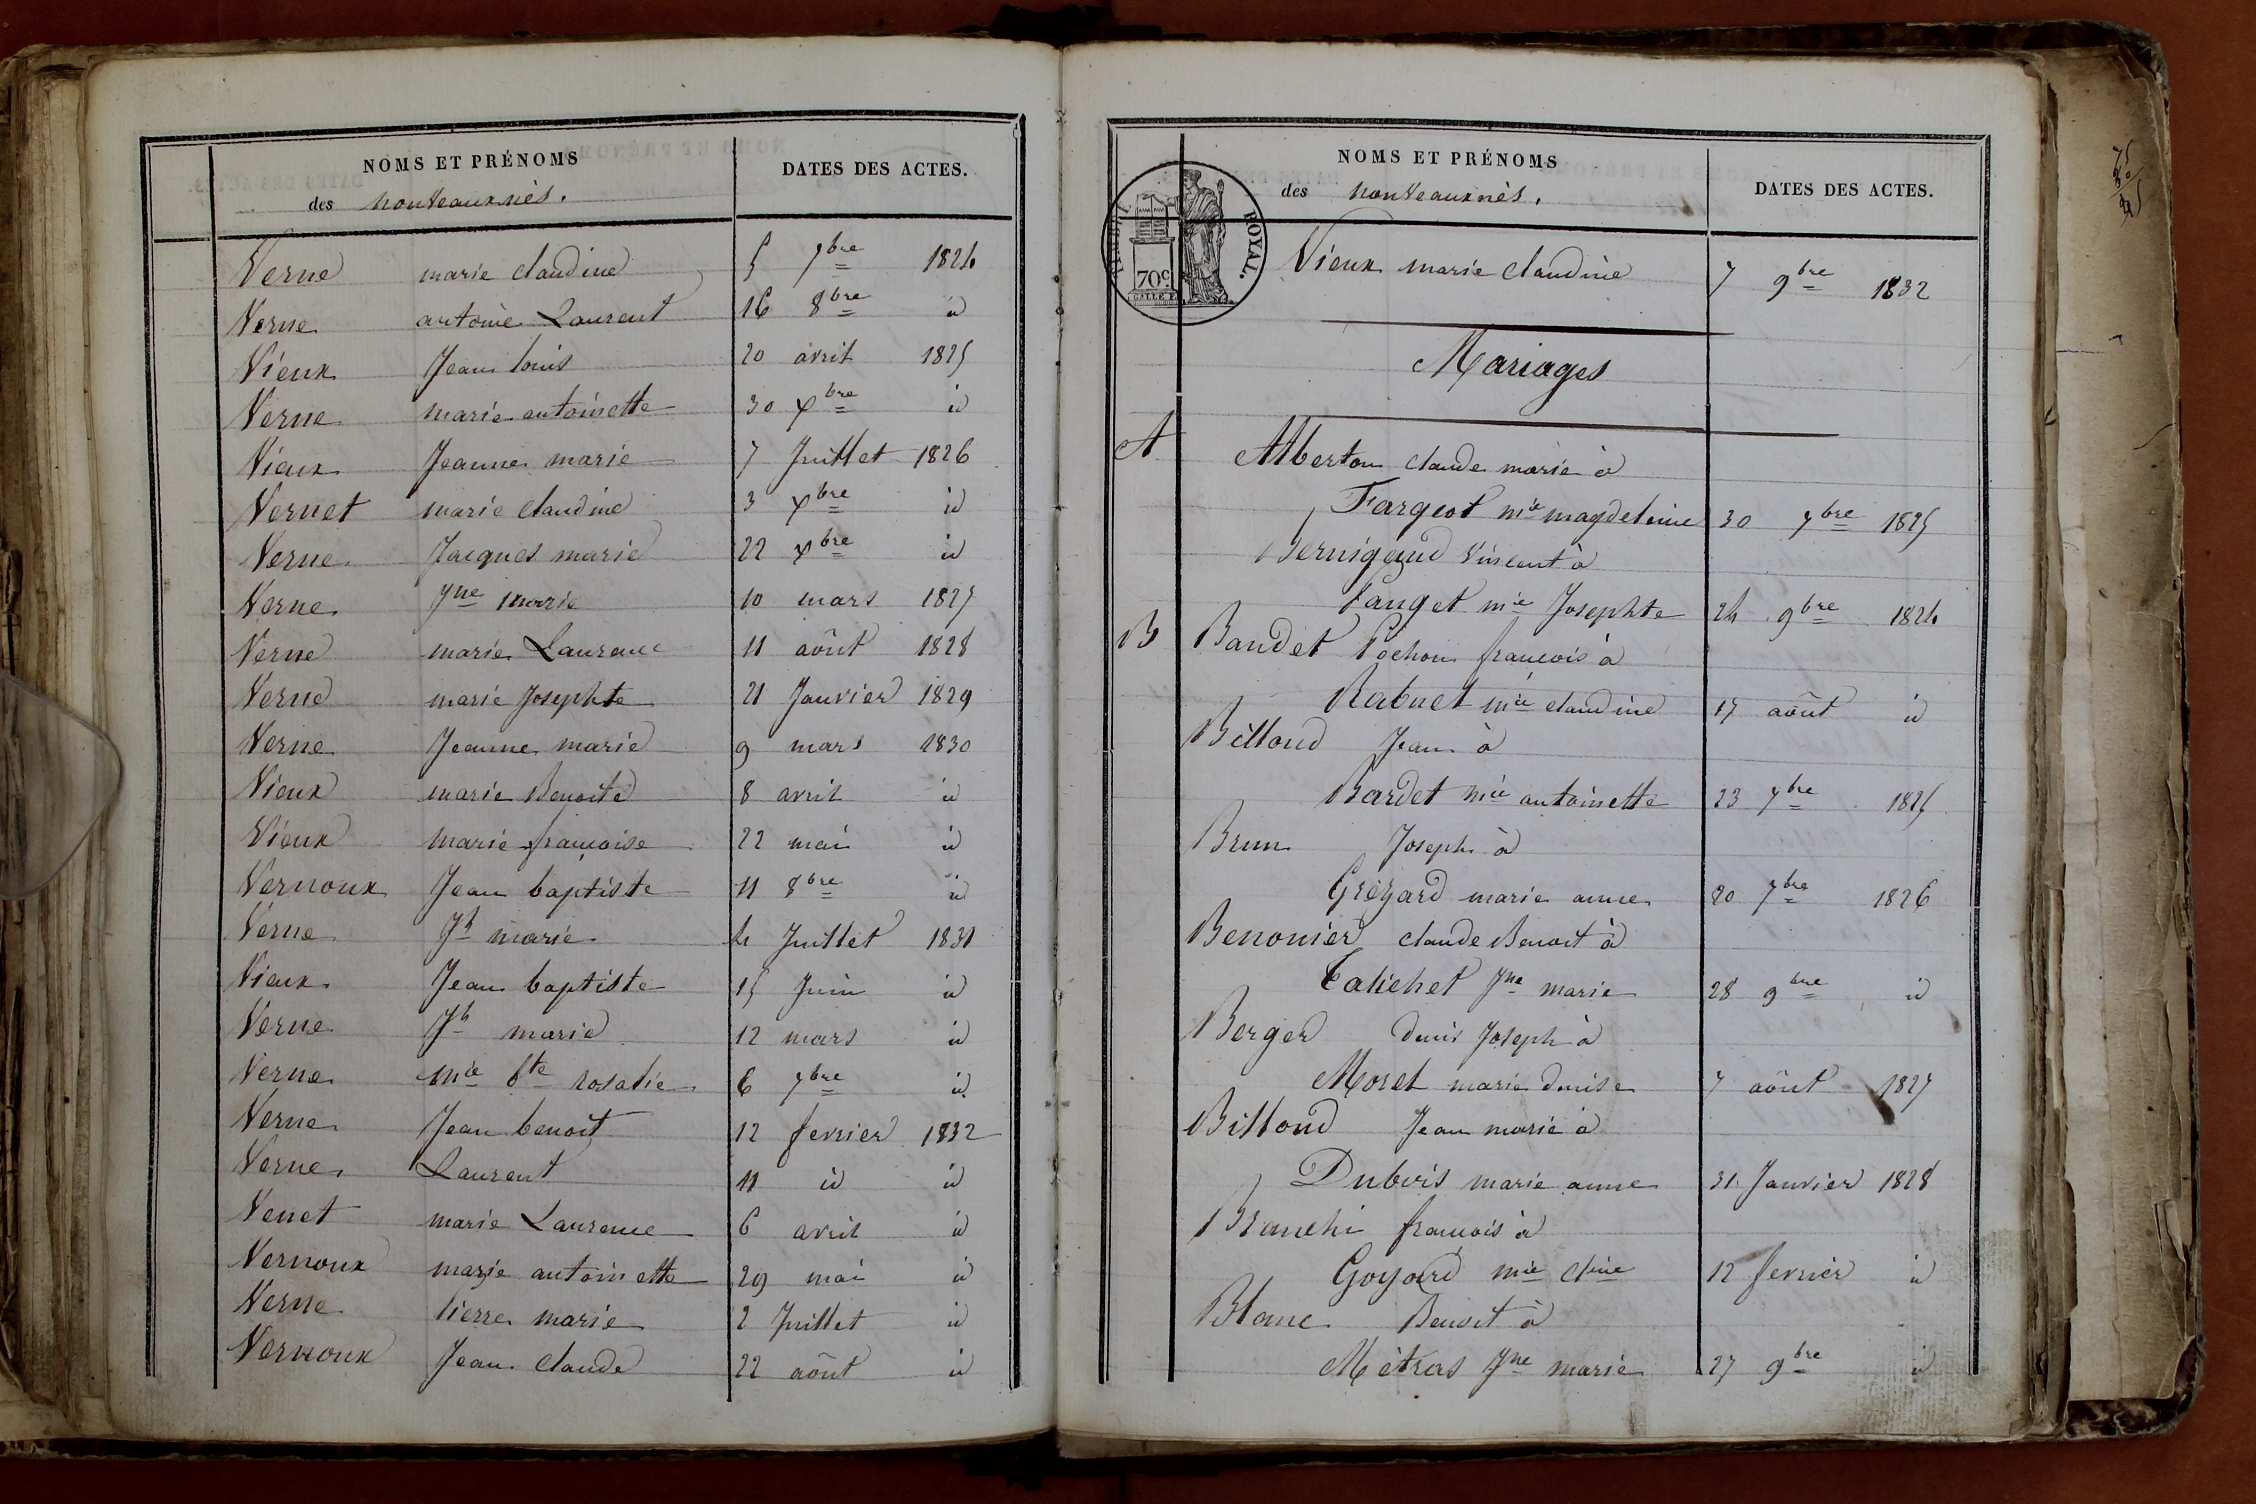 NOMS ET PRÉNOMS
DATES DES ACTES.
des nouveauxnès.
Verne marie claudine 5 7bre 1824
Verne antoine Laurent 16 8bre id
Vieux Jean louis 20 avril 1825
Verne marie antoinette 30 xbre id
Vieux Jeanne marie 7 Juillet 1826
Vernet marie claudine 3 xbre id
Verne Jacques marie 22 xbre id
Verne Jne marie 10 mars 1827
Verne marie Laurence 11 aôut 1828
Verne marie Josephte 21 Janvier 1829
Verne Jeanne marie 9 mars 1830
Vieux marie Benoite 8 avril id
Vieux marie françoise 22 mai id
Vernoux Jean baptiste 11 8bre id
Verne Jh marie 4 Juillet 1831
Vieux Jean baptiste 15 Juin id
Verne Jh marie 12 mars id
Verne mie bte rosalie 6 7bre id
Verne Jean benoit 12 fevrier 1832
Verne Laurent 11 id id
Venet marie Laurence 6 avril id
Vernoux marie antoinette 29 mai id
Verne Pierre marie 2 Juillet id
Vernoux Jean claude 22 aôut id
NOMS ET PRÉNOMS
DATES DES ACTES.
des nouveauxnès.
ROYAL.
70c.
Vieux marie claudine 7 9bre 1832
Mariages
A Alberton claude marie à
Fargeot mie magdeleine 30 7bre 1825
Bernigaud Vincent à
Fanget mie Josephte 24 9bre 1824
B Baudet Pochon francois à
Rabuet mie claudine 17 aôut id
Billoud Jean à
Bardet mie antoinette 23 7bre 1825
Brun Joseph à
Grézard marie anne 20 7bre 1826
Benonier claude Benoit à
Talichet Jne marie 28 9bre id
Berger denis Joseph à
Moret marie denise 7 aôut 1827
Billoud Jean marie à
Dubois marie anne 31 Janvier 1828
Branchi francois à
Goyard mie cline 12 fevrier id
Blanc Benoit à
Mètras Jne marie 27 9bre id